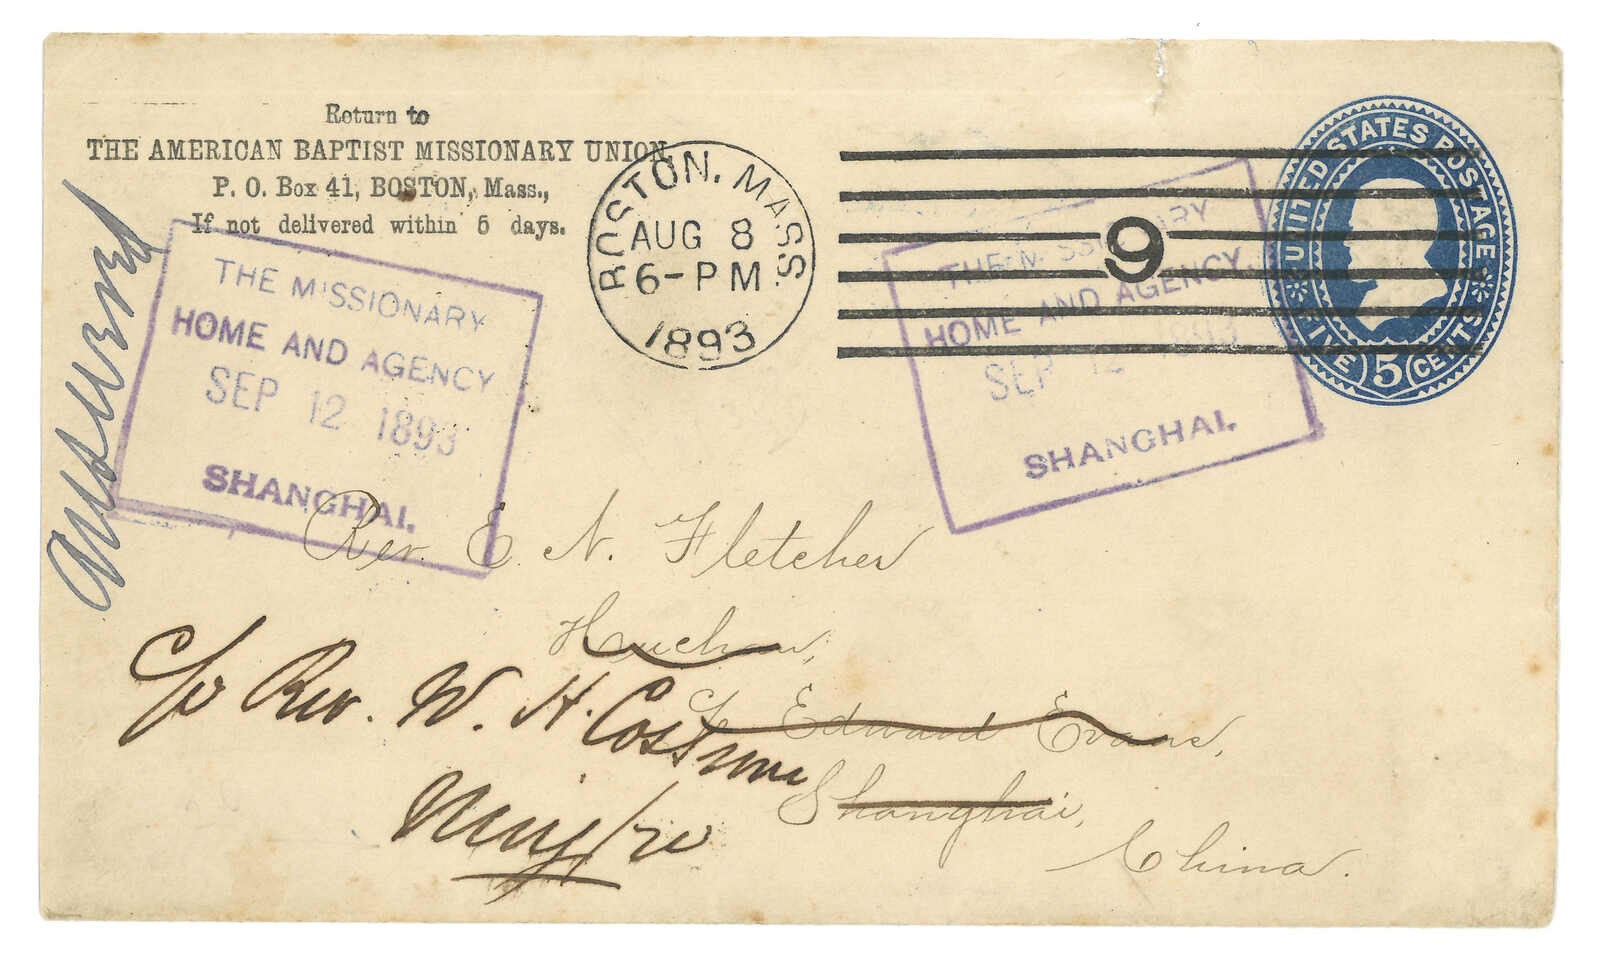 Return to
THE AMERICAN BAPTIST MISSIONARY UNION,
P. O. Box 41, BOSTON, Mass.,
If not delivered within 5 days.
BOSTON, MASS.
AUG 8
6-PM
1893
9
UNITED STATES POSTAGE
FIVE 5 CENTS
answered
THE MISSIONARY
HOME AND AGENCY
SEP 12 1893
SHANGHAI.
THE MISSIONARY
HOME AND AGENCY.
SEP 12 1893
SHANGHAI.
Rev. E. N. Fletcher
Huchow,
c/o Edward Evans,
Shanghai,
China.
c/o Rev. W. H. Cossum
Ningpo